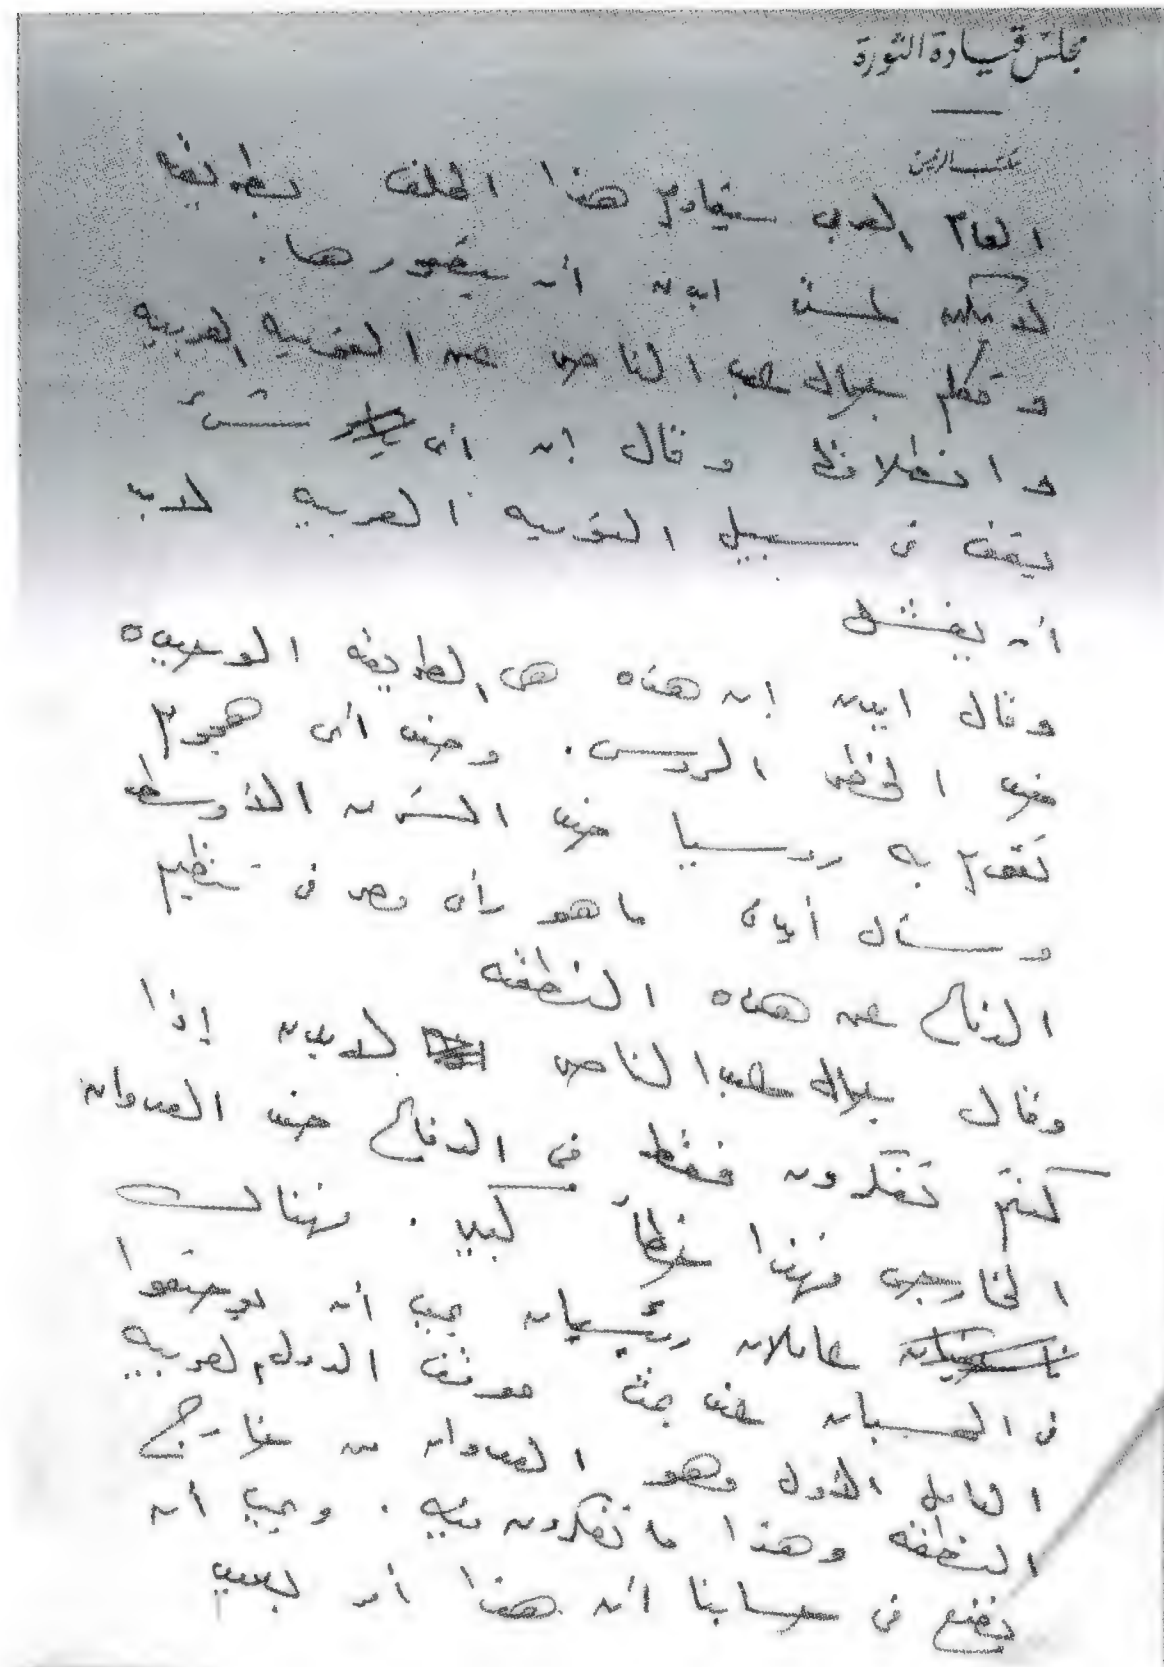 مجلس قيادة الثورة
مكتب الرئيس
العالم العربى سيقاوم هذا الحلف بطريقة
لم يكن لمستر ايدن أن يتصورها.
وتكلم جمال عبد الناصر عن القومية العربية
وانطلاقها وقال إن أى شىء
يقف فى سبيل القومية العربية لابد
أن يفشل
وقال ايدن إن هذه هى الطريقة الوحيدة
ضد الخطر الروسى. وضد أى هجوم
تقوم به روسيا ضد الشرق الأوسط
وسأل أيدن ما هو رأى مصر فى تنظيم
الدفاع عن هذه المنطقة
وقال جمال عبد الناصر لايدن إذا
كنتم تفكرون فقط فى الدفاع ضد العدوان
الخارجى فهذا خطأ كبير. فهناك
عاملان رئيسيان يجب أن يوضعوا
فى الحسبان عند بحث موقف الدول العربية
العامل الأول وهو العدوان من خارج
المنطقة وهذا ما تفكرون فيه. ويجب أن
نضع فى حسابنا أن هذا أمر بعيد